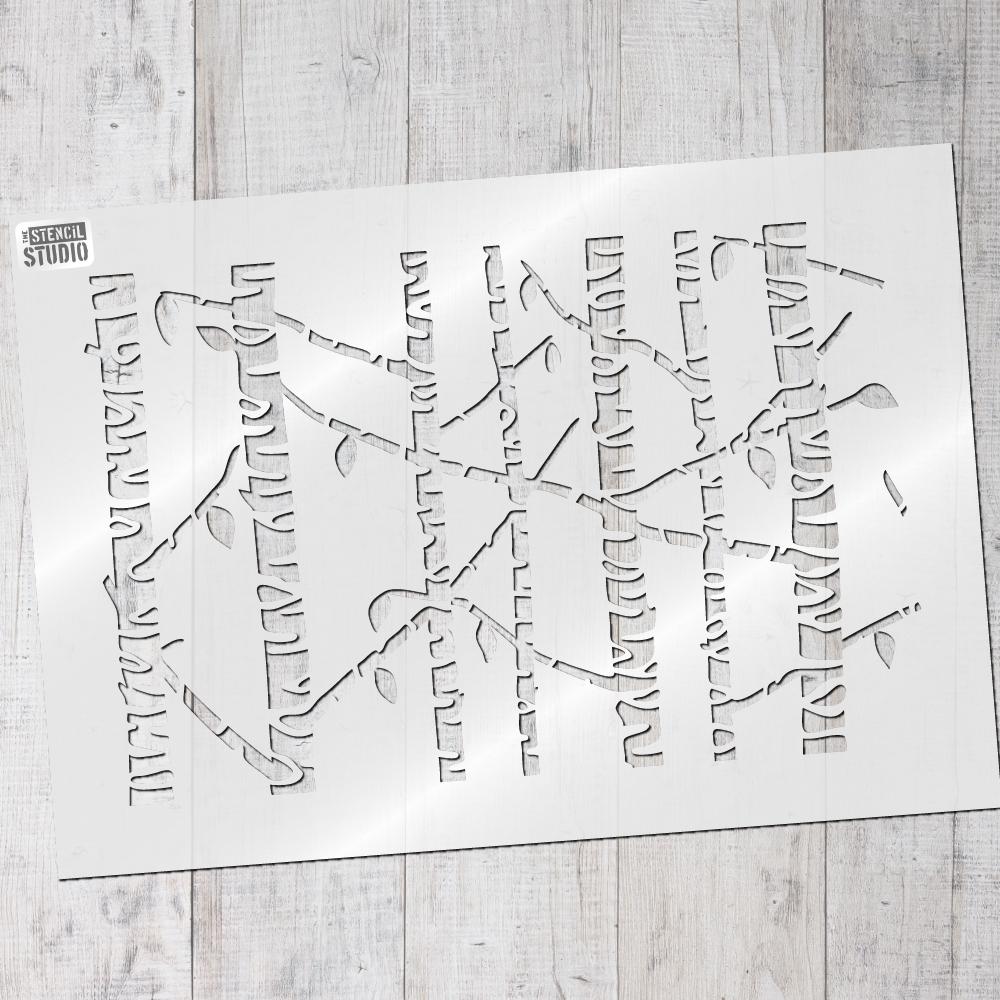 THE STENCIL
STUDIO